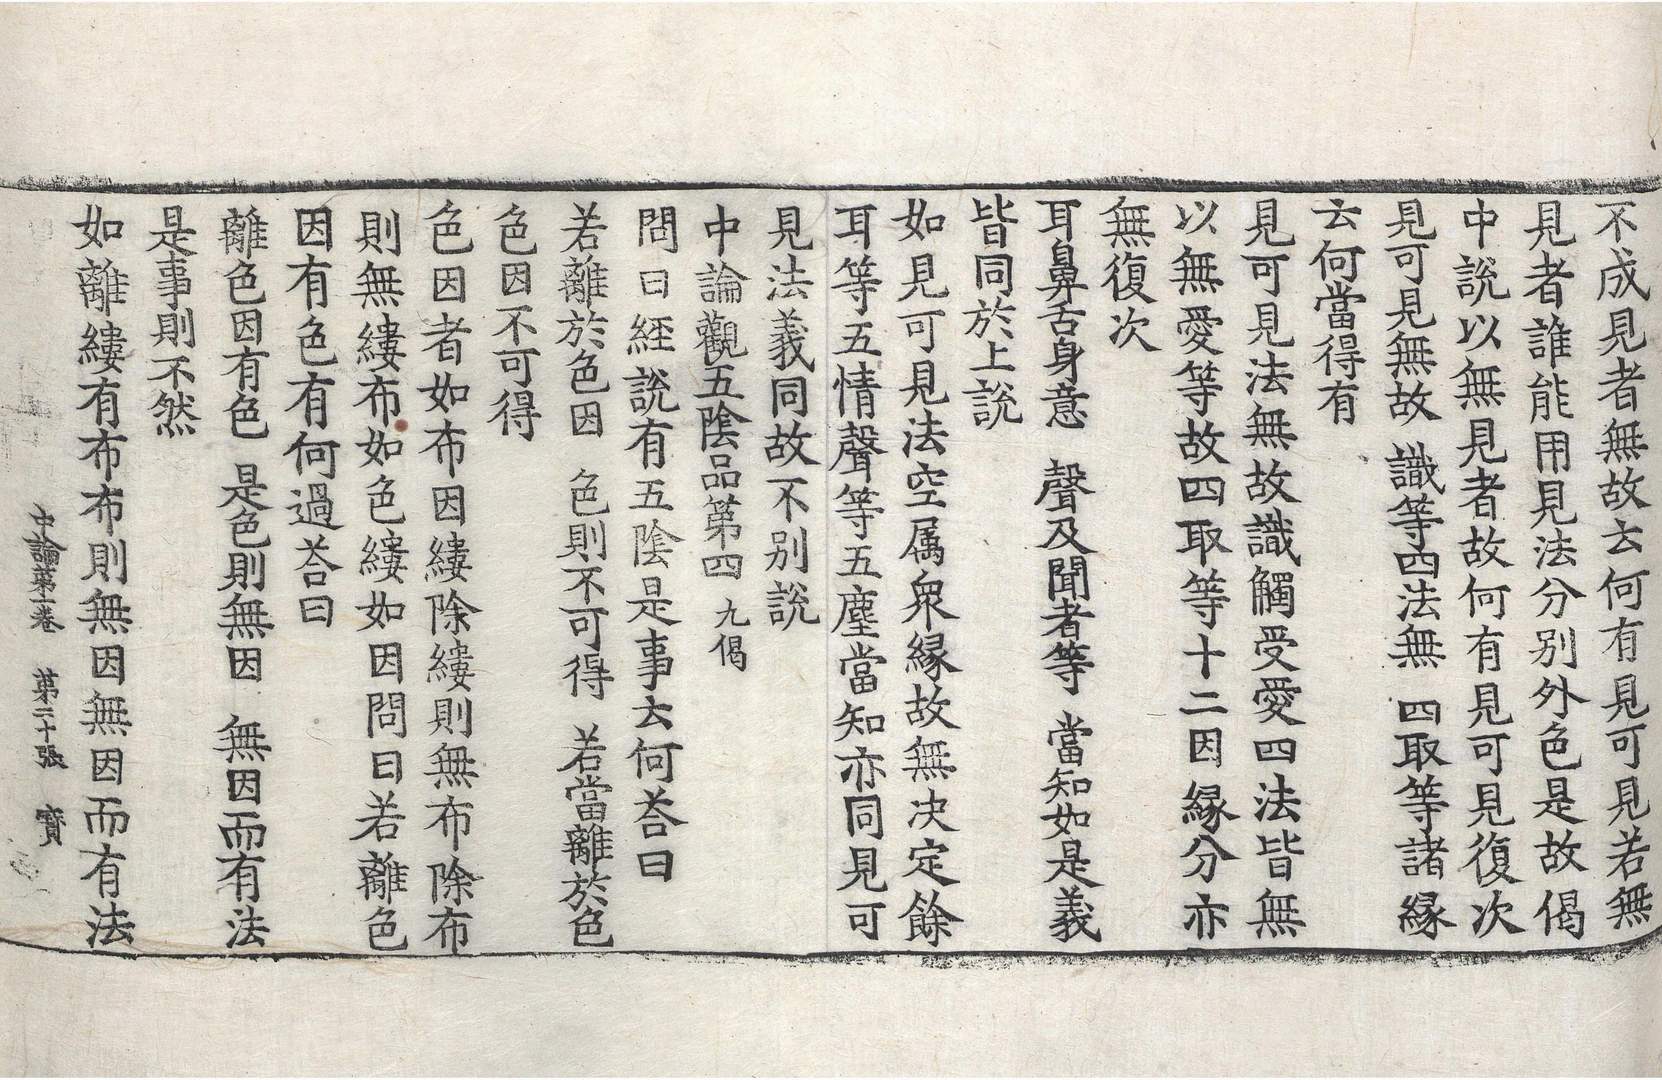 不成見者無故云何有見可見若無
見者誰能用見法分別外色是故偈
中說以無見者故何有見可見復次
見可見無故 識等四法無 四取等諸緣
云何當得有
見可見法無故識觸受愛四法皆無
以無愛等故四取等十二因緣分亦
無復次
耳鼻舌身意 聲及聞者等 當知如是義
皆同於上說
如見可見法空属衆緣故無決定餘
耳等五情聲等五塵當知亦同見可
見法義同故不別説
中論觀五陰品第四 九偈
問曰經說有五陰是事云何荅曰
若離於色因 色則不可得 若當離於色
色因不可得
色因者如布因縷除縷則無布除布
則無縷布如色縷如因問曰若離色
因有色有何過荅曰
離色因有色 是色則無因 無因而有法
是事則不然
如離縷有布布則無因無因而有法
中論第一卷 第二十張 寶